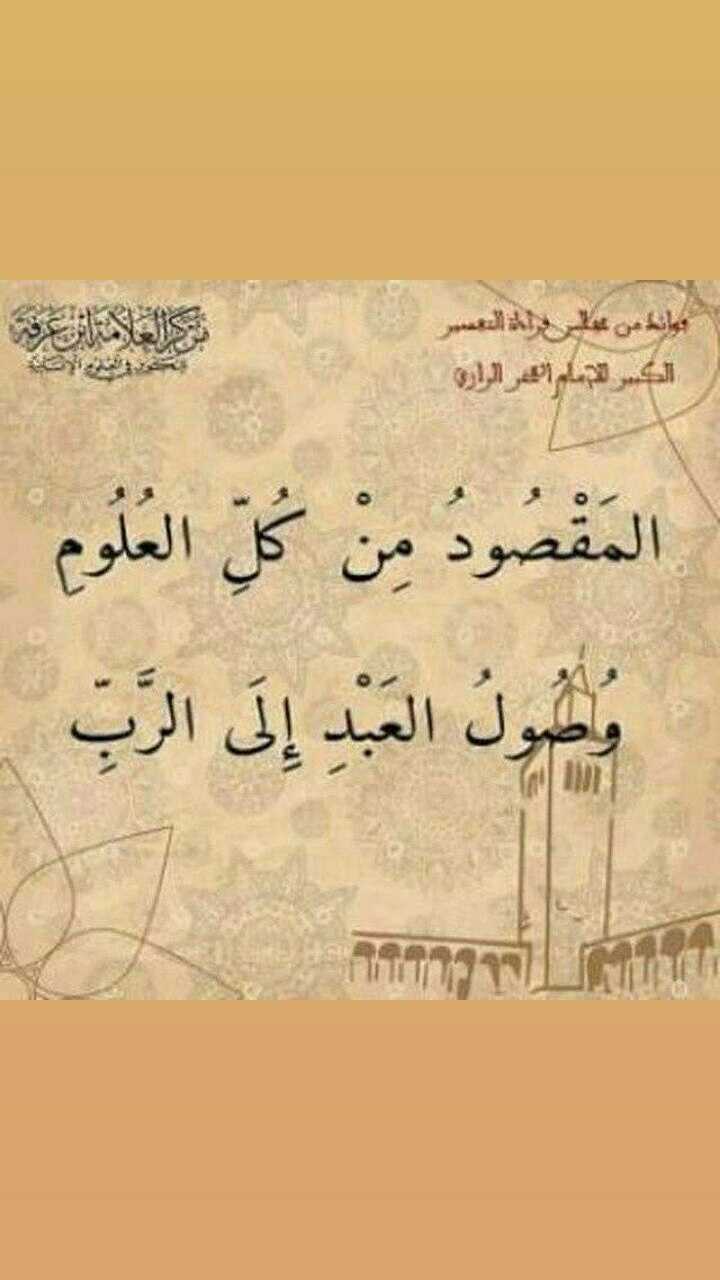 فوائد من مجالس قراءة التفسير
الكبير للإمام الفخر الرازي
مركز العلامة ابن عرفة
المَقْصُودُ مِنْ كُلِّ العُلُومِ
وُصُولُ العَبْدِ إِلَى الرَّبِّ